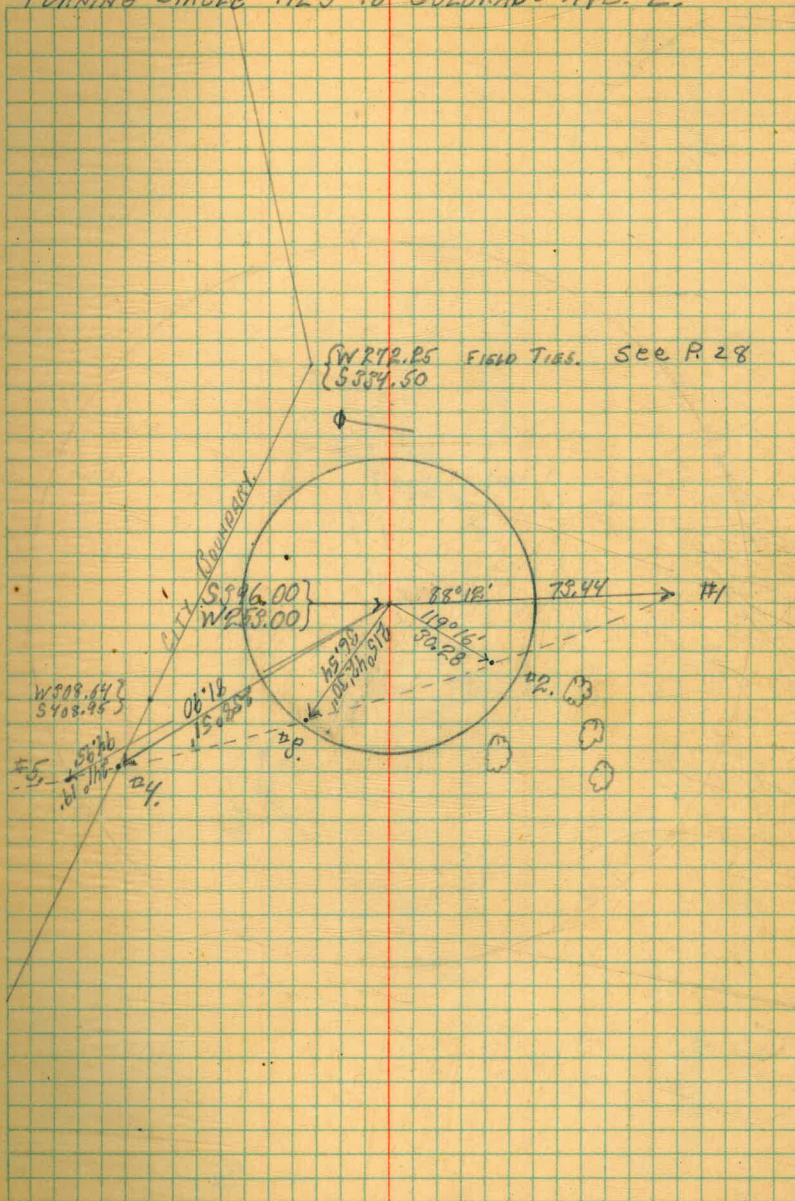 TURNING CIRCLE TIES TO COLORADO AVE. E.
{W 272.25 FIELD TIES. See P. 28
{S 334.50
CITY BOUNDARY
S 396.00}
W 253.00}
88°12' 73.44 #1
119°16'
30.28
#2.
215°46'30"
36.54
#3.
W 308.64}
S 408.95}
81.90
238°51'
#4.
94.95
241°19'
#5.